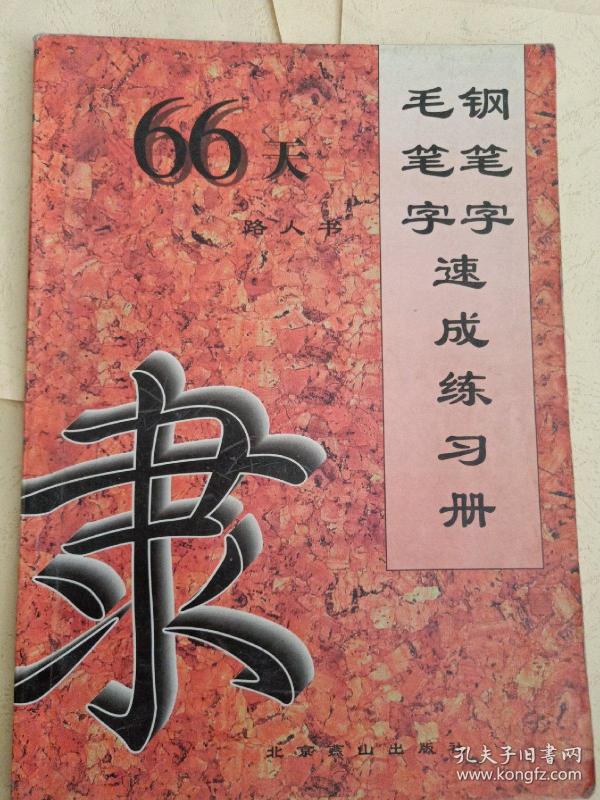 66天
路人书
钢笔字
毛笔字
速成练习册
隶
北京燕山出版社
孔夫子旧书网
www.kongfz.com